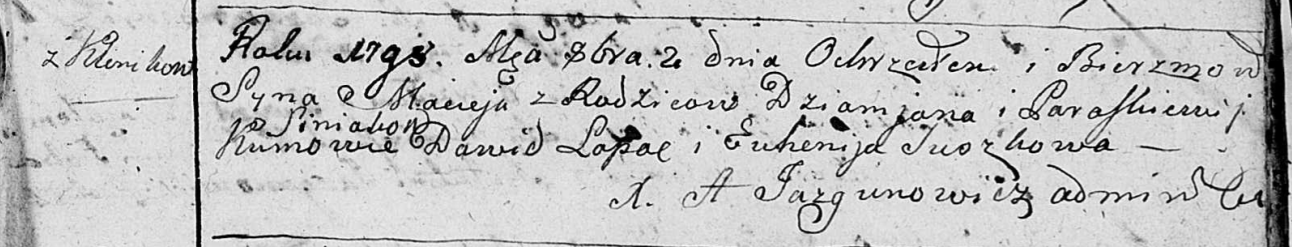 z Klenikow
Roku 1798. Mca 8bra. 2 dnia Ochrzciłem i Bierzmow
Syna Macieja z Rodzicow Dziamjana i Paraskiewij
Siniakow
Kumowie Dawid Łapac i Euhenija Suszkowa —
X. A Jazgunowicz admin